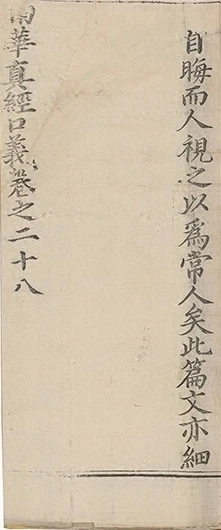 自晦而人視之以爲常人矣此篇文亦細
南華真經口義卷之二十八